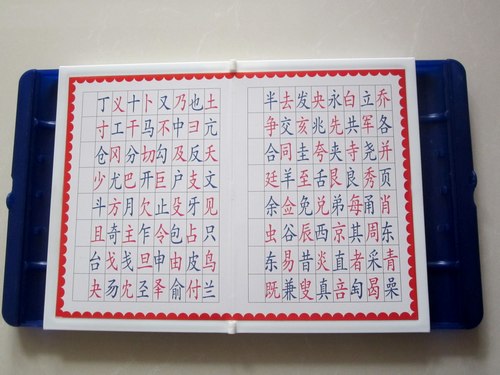 丁义十卜又乃也土
寸工干马不中彐亢
仓冈分切勾及反夭
少尤巴开巨户支文
斗方月欠止殳牙见
且奇主乍令包占只
台戈戋旦申由皮鸟
夬㐆冘圣睪俞付兰
半去发央永白立乔
争交亥兆先共军各
合同圭夸夹寺尧并
廷羊至舌艮良秀页
余佥免兑弟每甬肖
虫谷辰西京其周东
东易昔炎直者采青
既兼叟真咅匋曷喿